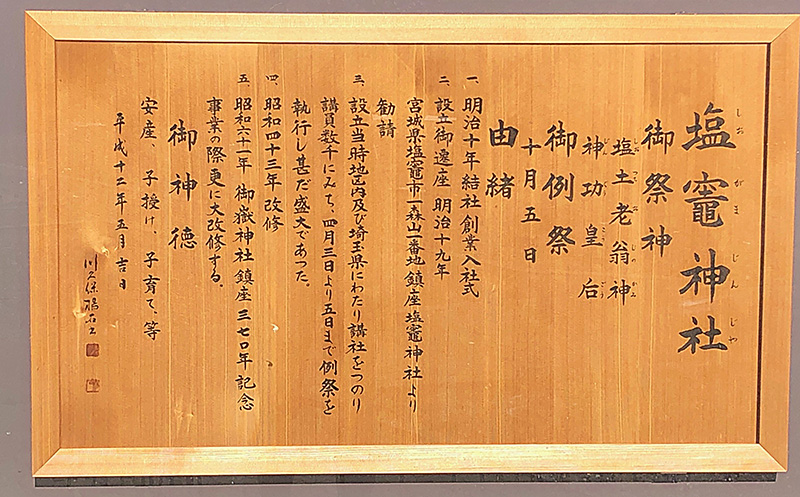 塩竈神社
しおがまじんじゃ
御祭神
塩土老翁神
しおつちおじのかみ
神功皇后
じんぐうこうごう
御例祭
十月五日
由緒
一、明治十年結社創業入社式
二、設立御遷座 明治十九年
宮城県塩竈市一森山一番地鎮座塩竈神社より
勧請
三、設立当時地区内及び埼玉県にわたり講社をつのり
講員数千にみち、四月三日より五日まで例祭を
執行し甚だ盛大であった。
四、昭和四十三年 改修
五、昭和六十一年 御嶽神社鎮座三七〇年記念
事業の際更に大改修する。
御神徳
安産、子授け、子育て、等
平成十二年五月吉日